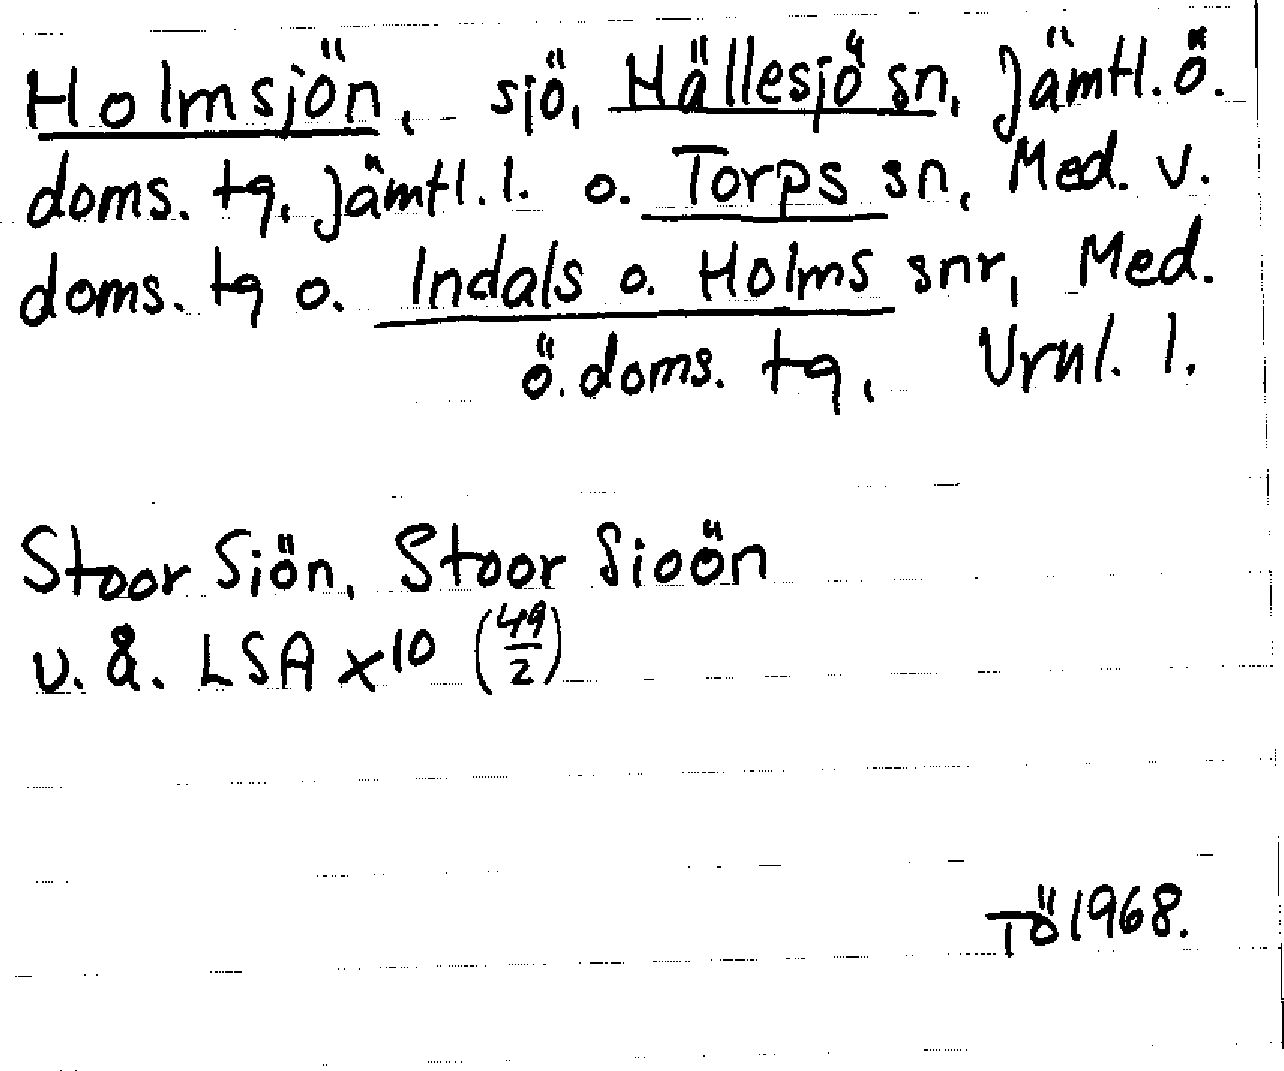 Holmsjön, sjö, Hällesjö sn, Jämtl. ö.
doms. tg, Jämtl. l. o. Torps sn, Med. v.
doms. tg o. Indals o. Holms snr, Med.
ö. doms. tg, Vrnl. l.
Stoor Siön, Stoor Sioön
u. å. LSA x10 (49/2)
TÖ 1968.